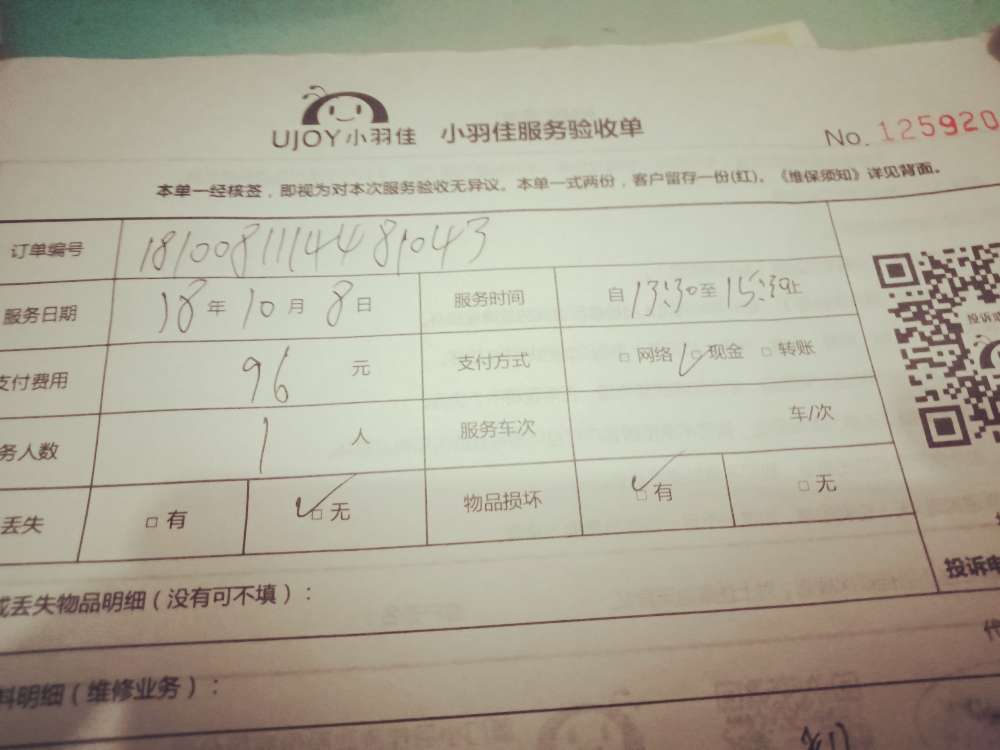 UJOY小羽佳 小羽佳服务验收单 No. 125920
本单一经核签，即视为对本次服务验收无异议。本单一式两份，客户留存一份(红)。《维保须知》详见背面。
订单编号 1810081114481043
服务日期 18年10月8日 服务时间 自13:30至15:30止
支付费用 96 元 支付方式 □ 网络 □ 现金 □ 转账
务人数 1 人 服务车次 车/次
丢失 □ 有 ✓□ 无 物品损坏 ✓□ 有 □ 无
投诉电
或丢失物品明细（没有可不填）：
料明细（维修业务）：